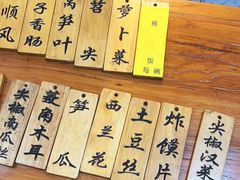 顺风
子香肠
莴笋叶
苕尖
萝卜菜
稀饭每碗
尖椒南瓜丝
木耳
笋瓜
西兰花
土豆丝
炸馍片
尖椒汉菜